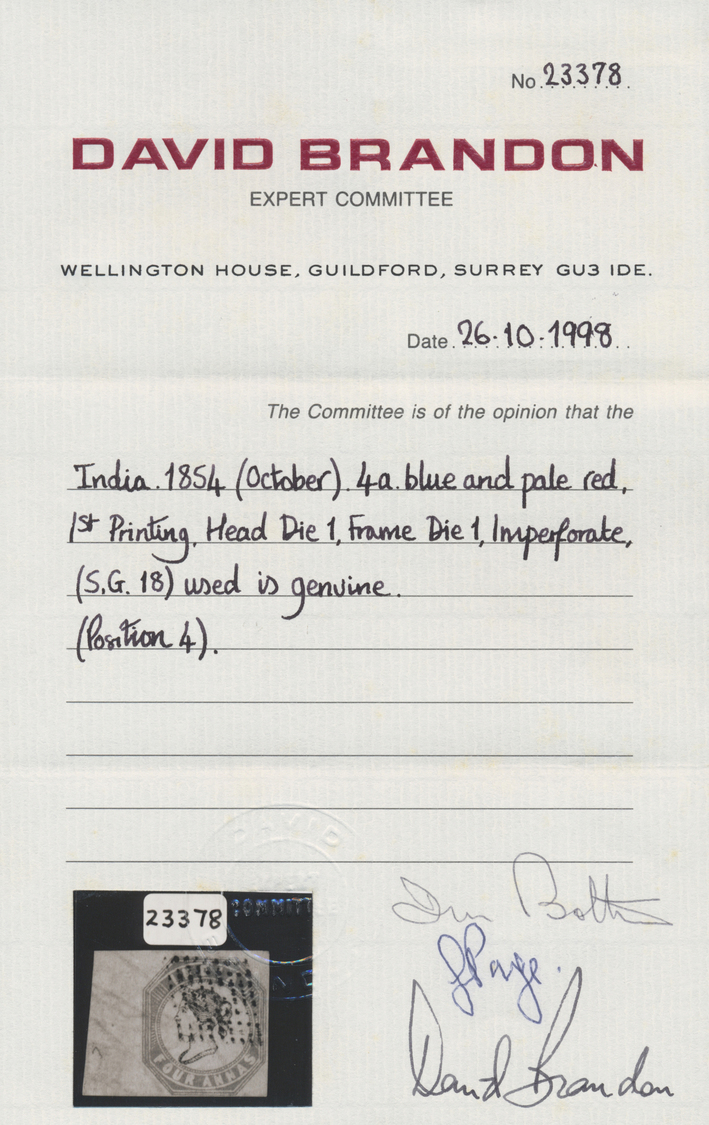 No. 23378
DAVID BRANDON
EXPERT COMMITTEE
WELLINGTON HOUSE, GUILDFORD, SURREY GU3 IDE.
Date. 26.10.1998
The Committee is of the opinion that the
India. 1854 (October). 4a. blue and pale red,
1st Printing, Head Die 1, Frame Die 1, Imperforate,
(S.G. 18) used is genuine.
(Position 4).
DAVID
23378
COMMITTEE
FOUR ANNAS
David Brandon